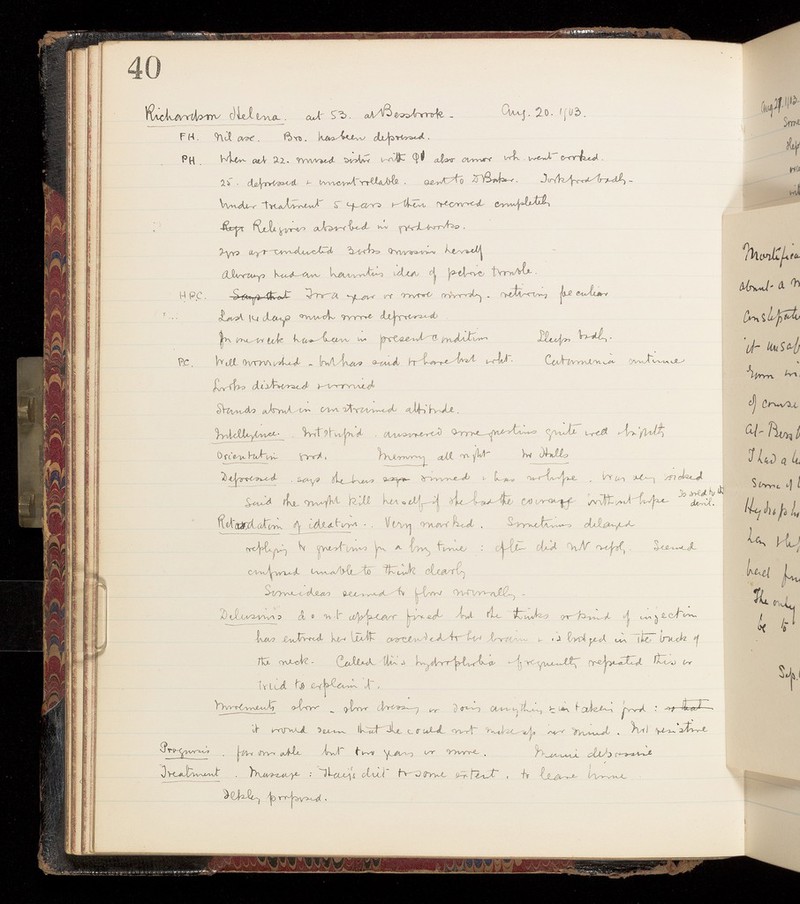 40
Richardson Helena. aet 53. at Bessbrook - Aug. 20. 1903.
F H. Nil asc. Bro. has been depressed.
P H. When aet 22. nursed sister with also amor wh went
25. depressed & uncontrollable. sent to Dr Baker. Took food badly -
Under treatment 5 years & then recovered completely
Religious absorbed in good works.
2 yrs ago conducted 3 weeks mission herself
Always had an haunting idea of pelvic trouble.
H P.C. Says that For a year or more moody. peculiar
Last 14 days much more depressed
for one week has been in present condition Sleeps badly.
P.C. Well nourished - but has said to have lost weight. Catamenia continue
Looks distressed & worried
Stands about in constrained attitude.
Intelligence. Not stupid. answered some questions quite well & brightly
Orientation good. Memory all right No Halls
Depressed. says she has says sinned & has no hope. was very wicked
Said she might kill herself if she had the courage without hope So sold to the devil.
Retardation of ideation -. Very marked. Sometimes delayed
replying to questions for a long time : often did not reply. Seemed
confused unable to think clearly
Some ideas seemed to flow normally -
Delusions do not appear fixed but she thinks a kind of injection
has entered her teeth ascended to her brain & is lodged in the back of
the neck. Called this hydrophobia & frequently repeated this or
tried to explain it.
Movements slow - slow dressing or doing anything & in taking food : so that
it would seem that she could not make up her mind. Not resistive
Prognosis. favourable but two years or more. Mania depressive
Treatment. Massage : Haig's diet to some extent. to leave home
Ilkley proposed.
Aug 27. 1903
Some
Mortifica
about a
Constipati
it unsaf
from
of course
at Bess
I had a le
Some of
Hydroph
has
head
The only
be to
Sep.